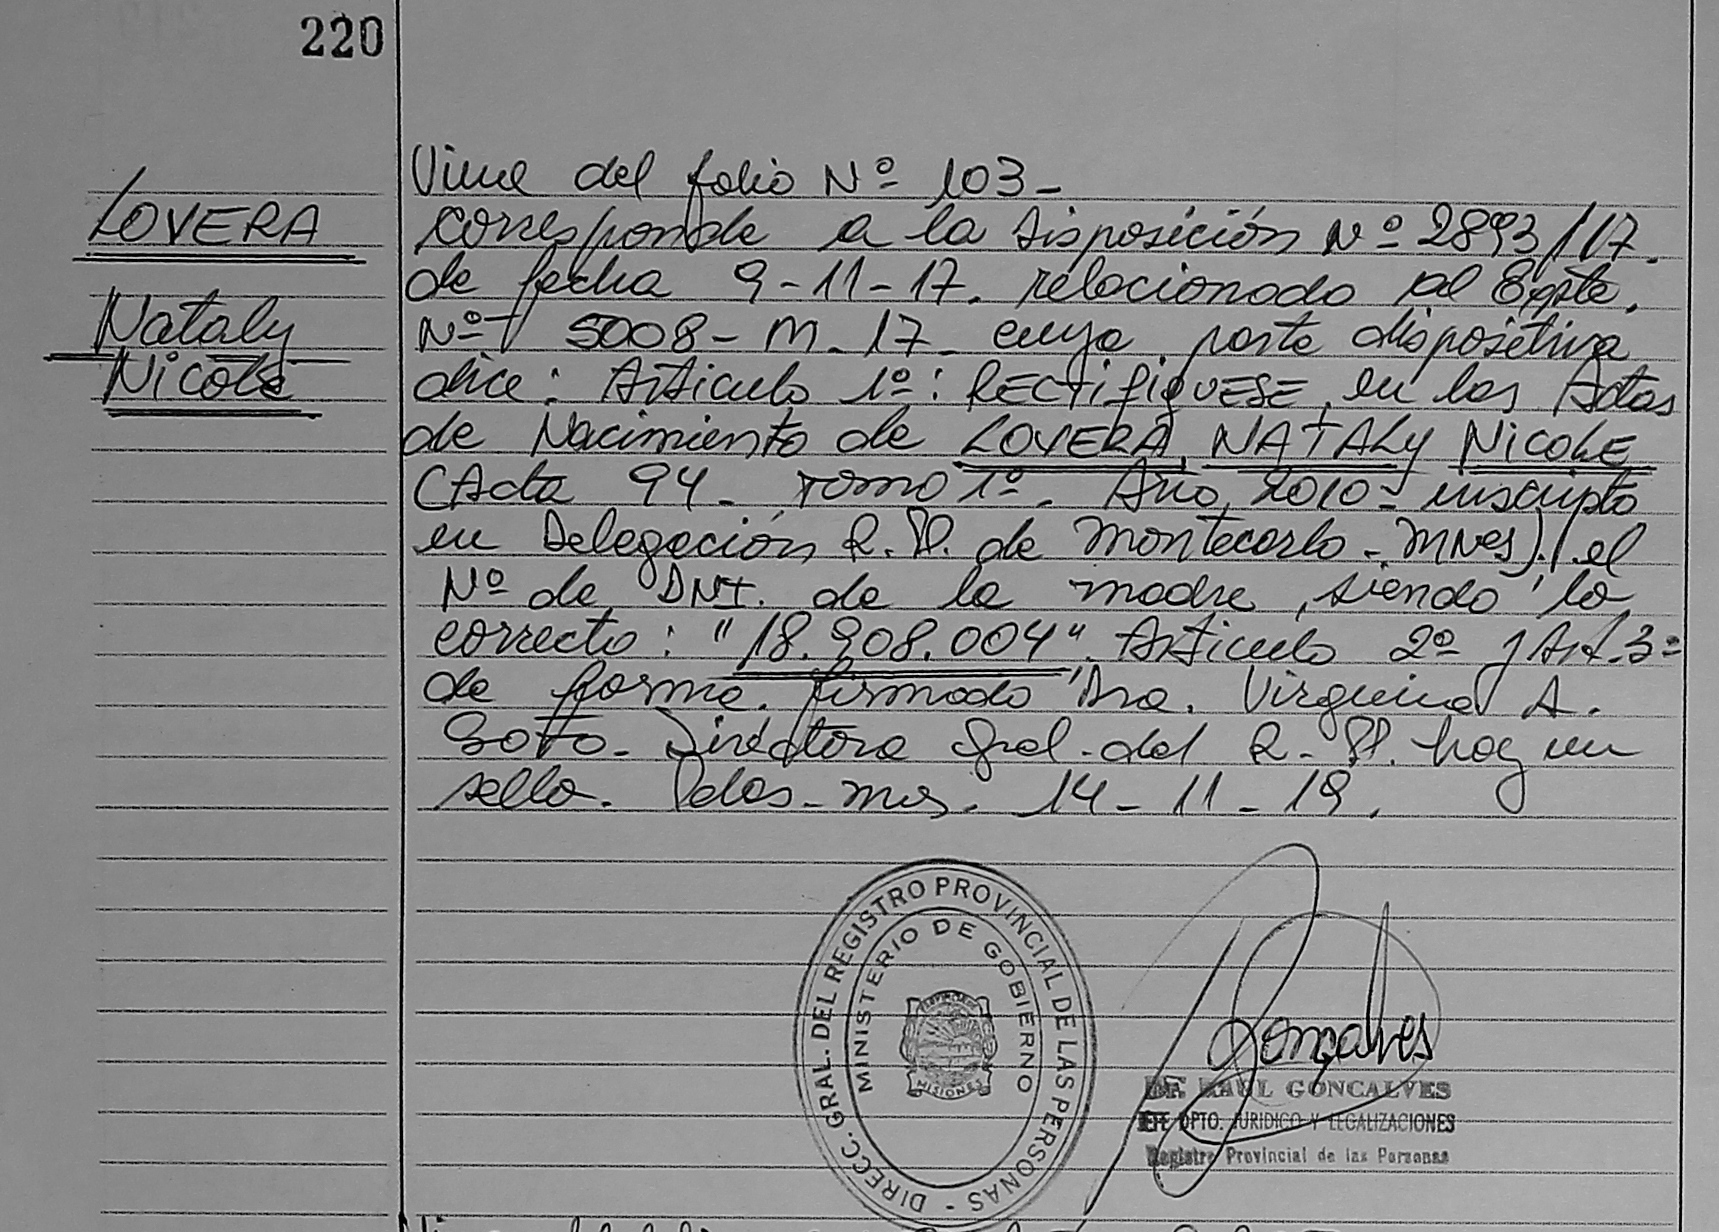 220
LOVERA
Nataly
Nicole
Viene del folio Nº 103-
Corresponde a la Disposición Nº 2893/17.
de fecha 9-11-17. relacionado al Expte.
Nº 5008-M-17- cuya parte dispositiva
dice: Articulo 1º: RECTIFIQUESE en las Actas
de Nacimiento de LOVERA, NATALY NICOLE
(Acta 94- Tomo 1º- Año, 2010- inscripto
en Delegación R.P. de Montecarlo-Mnes). el
Nº de DNI. de la madre, siendo lo
correcto: "18.908.004". Articulo 2º y Art.3º
de forma. firmado Dra. Virginia A.
Soto- Directora Gral-del R-P. hay un
sello. Pdas-mnes. 14-11-19.
DIRECC. GRAL. DEL REGISTRO PROVINCIAL DE LAS PERSONAS -
MINISTERIO DE GOBIERNO
MISIONES
Gonçalves
Dr. RAUL GONCALVES
JEFE DPTO. JURIDICO Y LEGALIZACIONES
Registro Provincial de las Personas